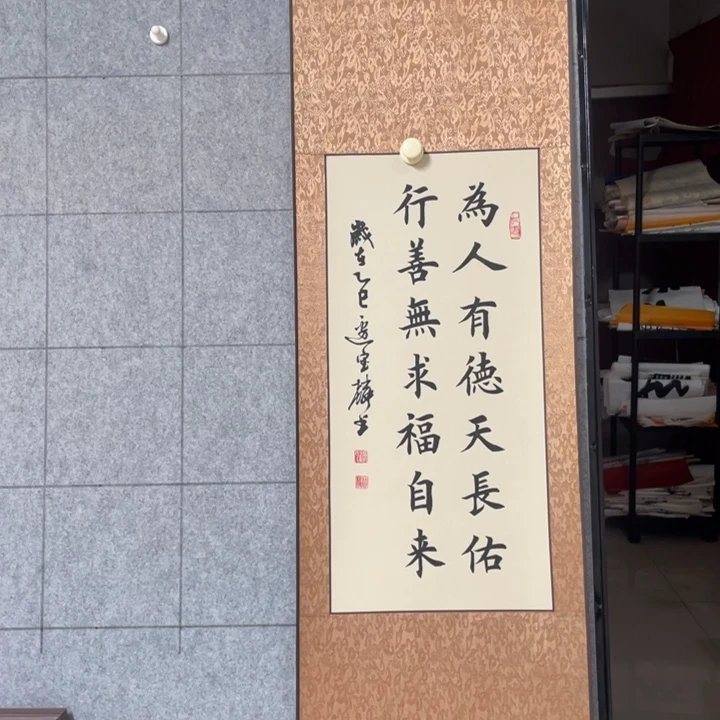 為人有德天長佑
行善無求福自来
歲在乙巳邊宝麟书